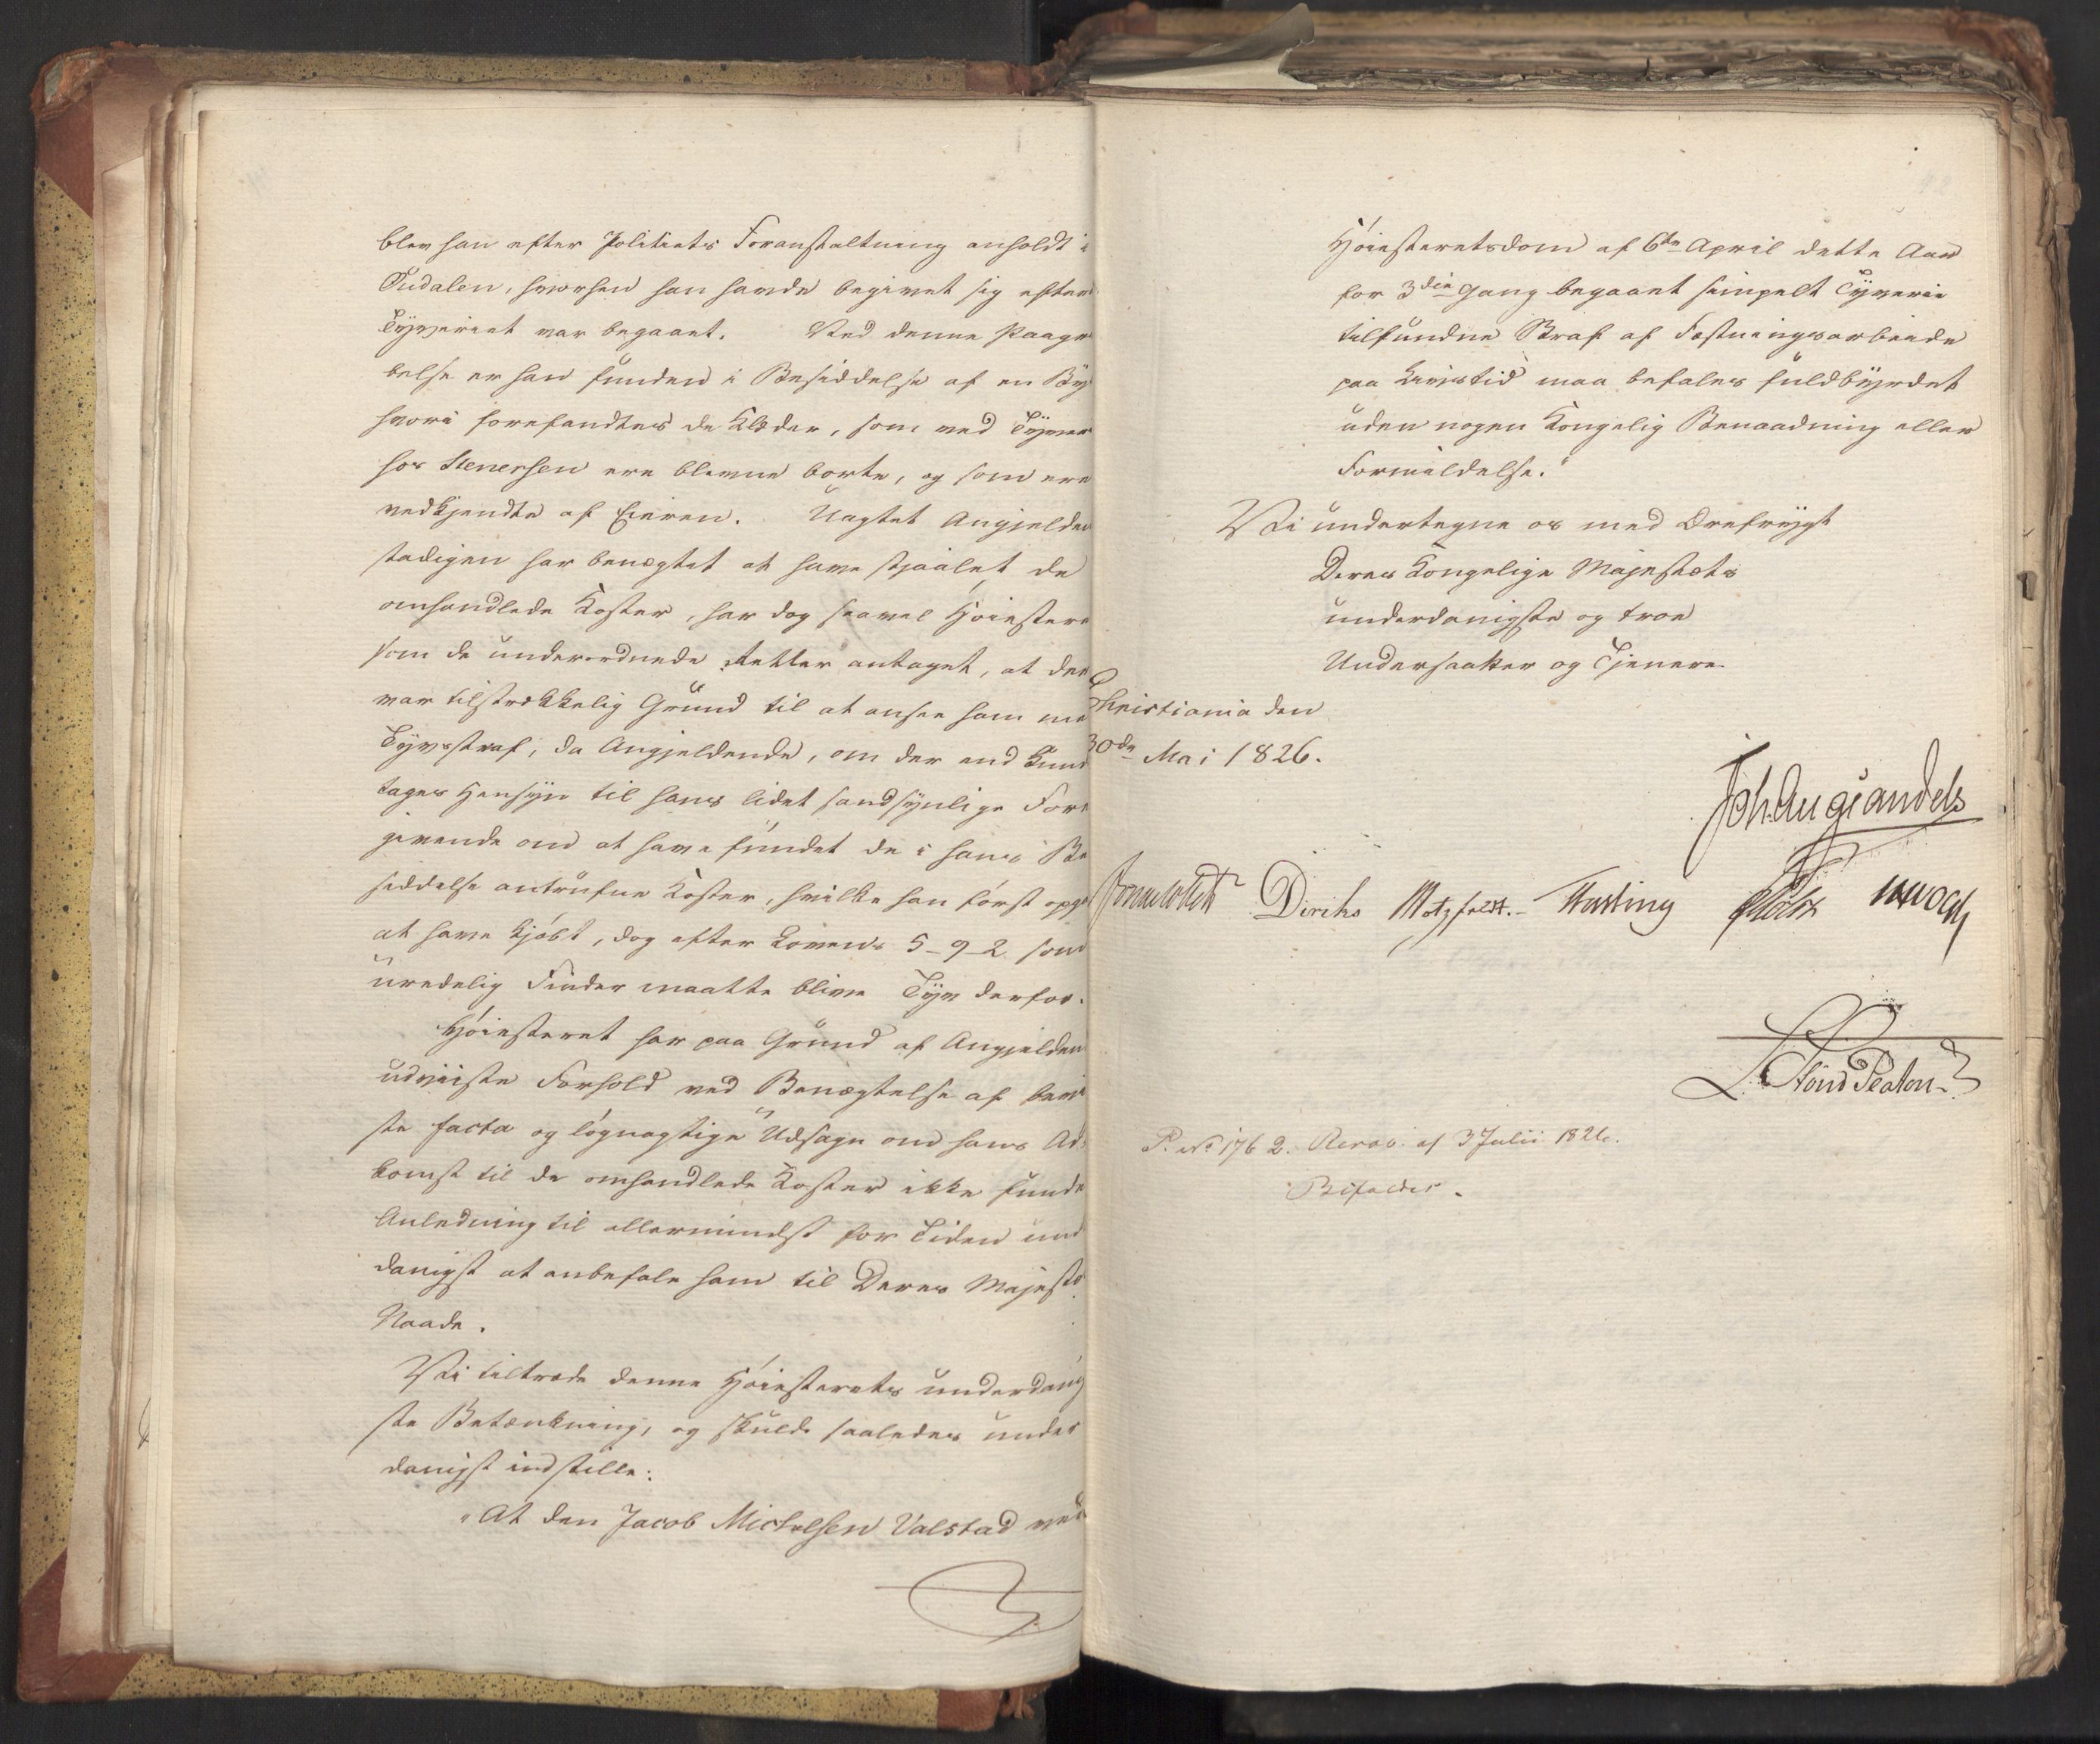 blev han efter Politiets Foranstaltning anholdt i
Tudalen, hvorhen han havde begivet sig efter
Tyveriet var begaaet. Ved denne Paagri
belse er han funden i Besiddelse af en Byl
hvori forefandtes de Klæder, som ved Tyver
hos Stenersen ere blevne borte, og som ere
vedkjendte af Eieren. Uagtet Angjelden
stadigen har benægtet at have stjaalet de
omhandlede Koster, har dog saavel Høiestere
som de underordnede Retter antaget, at der
var tilstrækkelig Grund til at ansee ham me
Tyvsstraf, da Angjeldende, om der end kund
tages Hensyn til hans lidet sandsynlige Fore
givende om at have fundet de i hans Be
siddelse antrufne Koster, hvilke han først opga
at have kjøbt, dog efter Lovens 5-9-2 som
uredelig Finder maatte blive Tyv derfor.
Høiesteret har paa Grund af Angjelden
udviiste Forhold ved Benægtelse af bevi
ste facta og løgnagtige Udsagn om hans Ad
komst til de omhandlede Koster ikke funde
Anledning til allermindst for Tiden und
danigst at anbefale ham til Deres Majestæ
Naade.
Vi tiltræde denne Høiesterets underdanig
ste Betænkning, og skulde saaledes under
danigst indstille:
"At den Jacob Michelsen Valstad ved
Høiesteretsdom af 6te April dette Aar
for 3die Gang begaaet simpelt Tyverie
tilfundne Straf af Fæstningsarbeide
paa Livstid maa befales fuldbyrdet
uden nogen Kongelig Benaadning eller
Formildelse."
Vi undertegne os med Ærefrygt
Deres Kongelige Majestæts
underdanigste og troe
Undersaatter og Tjenere
Christiania den
30de Mai 1826.
Joh. Aug Sandels
Diriks Motzfeldt. Fasting
L. Stoud Platou
P. No 176 2. Resol. af 3 Julii 1826.
Bifaldes.